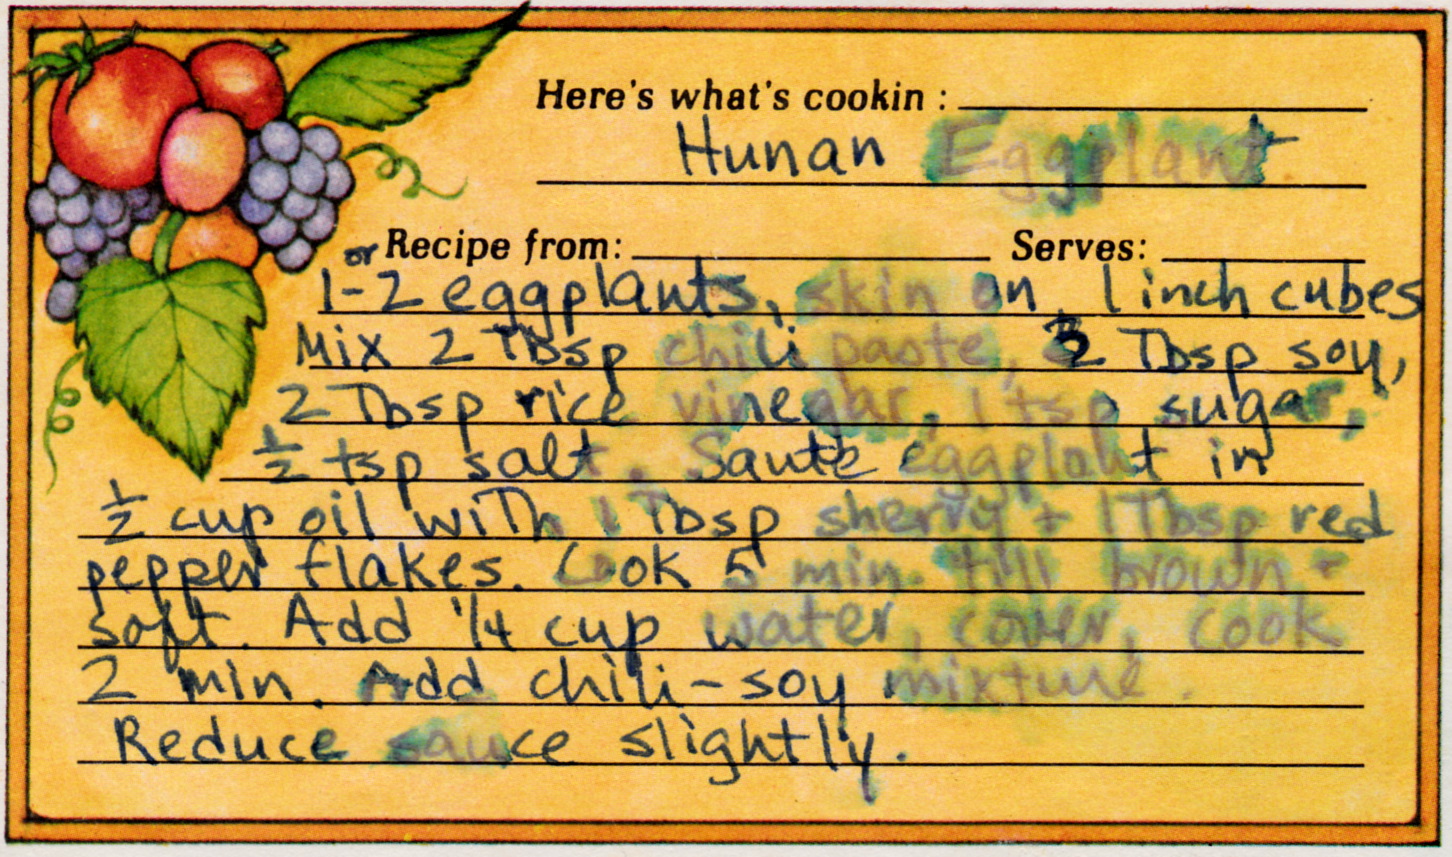 Here's what's cookin :
Hunan Eggplant
Recipe from: Serves:
1 or 2 eggplants, skin on, 1 inch cubes
Mix 2 Tbsp chili paste, 2 Tbsp soy,
2 Tbsp rice vinegar, 1 tsp sugar,
½ tsp salt. Sauté eggplant in
½ cup oil with 1 Tbsp sherry + 1 Tbsp red
pepper flakes. Cook 5 min. till brown -
soft. Add 1/4 cup water, cover, cook
2 min. Add chili-soy mixture.
Reduce sauce slightly.